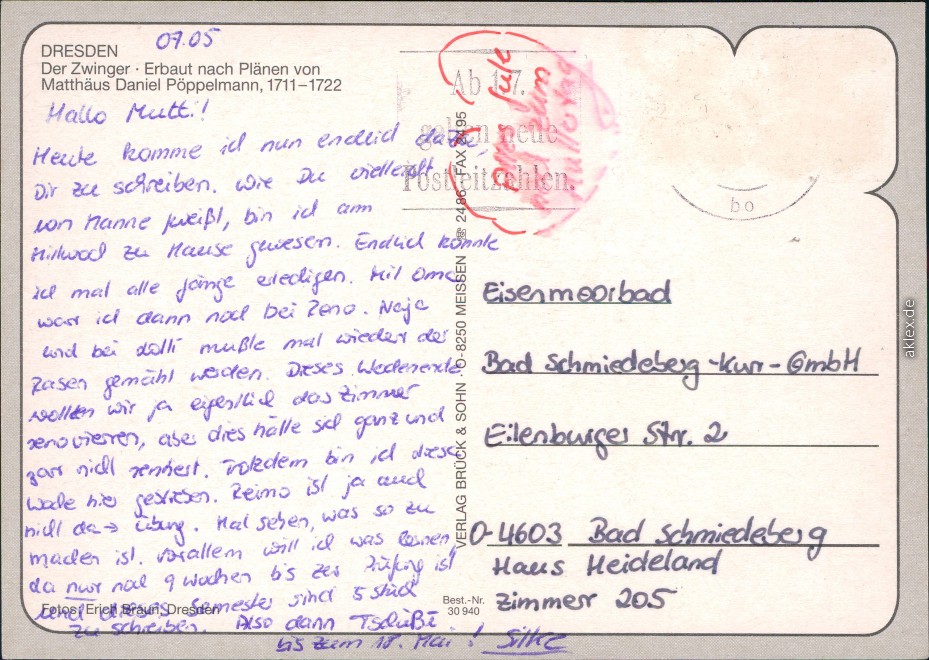 DRESDEN
Der Zwinger · Erbaut nach Plänen von
Matthäus Daniel Pöppelmann, 1711–1722
07.05
Hallo Mutti!
Heute komme ich nun endlich dazu,
Dir zu schreiben. Wie Du vielleicht
von Hanne weißt, bin ich am
Mittwoch zu Hause gewesen. Endlich konnte
ich mal alle Gänge erledigen. Mit Oma
war ich dann noch bei Zeno. Naja
und bei mußte mal wieder der
Rasen gemäht werden. Dieses Wochenende
wollten wir ja eigentlich das Zimmer
renovieren, aber dies hätte sich ganz und
gar nicht rentiert. Trotzdem bin ich diese
Woche hier geblieben. Reimo ist ja auch
nicht da → Übung. Mal sehen, was so zu
machen ist. Vorallem will ich was lernen,
da nur noch 9 Wochen bis zur Prüfung ist
und dieses Semester sind 5 Stück
zu schreiben. Also dann Tschüßi
bis zum 18. Mai! Silke
Fotos: Erich Braun, Dresden
Best.-Nr.
30 940
VERLAG BRÜCK & SOHN · O-8250 MEISSEN ☏ 2486 · FAX 2495
Ab 1.7.
gelten neue
Postleitzahlen.
Alles Gute
zum
Muttertag
bo
Eisenmoorbad
Bad Schmiedeberg-Kur-GmbH
Eilenburger Str. 2
O-4603 Bad Schmiedeberg
Haus Heideland
Zimmer 205
aklex.de